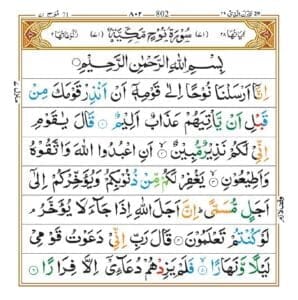 ۸۰۲ 802
سُوْرَةُ نُوْحٍ مَّكِّيَّةٌ (۷۱)
بِسْمِ اللّٰهِ الرَّحْمٰنِ الرَّحِيْمِ
اِنَّاۤ اَرْسَلْنَا نُوْحًا اِلٰى قَوْمِهٖۤ اَنْ اَنْذِرْ قَوْمَكَ مِنْ
قَبْلِ اَنْ يَّاْتِيَهُمْ عَذَابٌ اَلِيْمٌ ۝ قَالَ يٰقَوْمِ
اِنِّيْ لَكُمْ نَذِيْرٌ مُّبِيْنٌ ۝ اَنِ اعْبُدُوا اللّٰهَ وَاتَّقُوْهُ
وَاَطِيْعُوْنِ ۝ يَغْفِرْ لَكُمْ مِّنْ ذُنُوْبِكُمْ وَيُؤَخِّرْكُمْ اِلٰۤى
اَجَلٍ مُّسَمًّى ؕ اِنَّ اَجَلَ اللّٰهِ اِذَا جَآءَ لَا يُؤَخَّرُ ۘ
لَوْ كُنْتُمْ تَعْلَمُوْنَ ۝ قَالَ رَبِّ اِنِّيْ دَعَوْتُ قَوْمِيْ
لَيْلًا وَّنَهَارًا ۝ فَلَمْ يَزِدْهُمْ دُعَآءِيْۤ اِلَّا فِرَارًا ۝